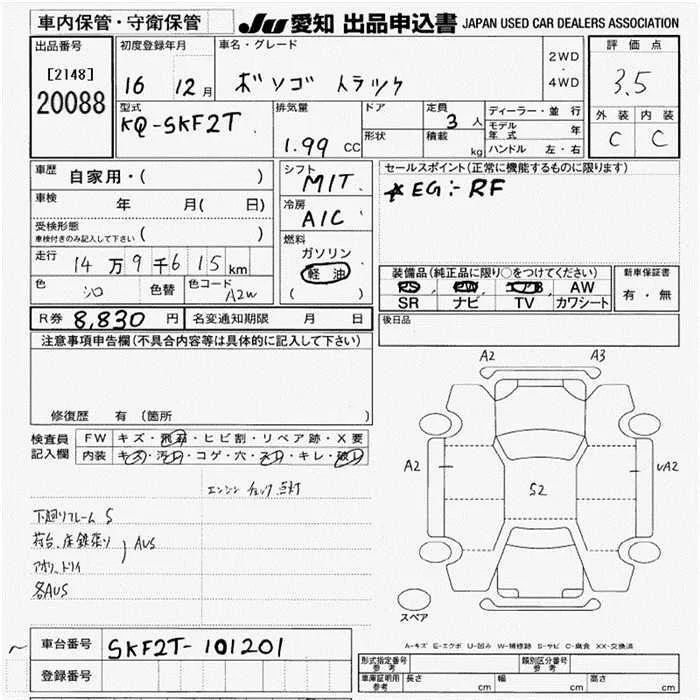 車内保管・守衛保管
JU 愛知 出品申込書 JAPAN USED CAR DEALERS ASSOCIATION
出品番号
[2148]
20088
初度登録年月
16 12月
車名・グレード
ボンゴ トラック
2WD
・
4WD
評価点
3.5
外装 内装
C C
型式
KQ-SKF2T
排気量
1.99 CC
ドア
形状
定員
3人
積載
kg
ディーラー・並行
モデル年式 年
ハンドル 左・右
車歴 自家用・( )
車検 年 月( 日)
受検形態
車検付きのみ記入して下さい ( )
走行 14万9千615km
色 シロ 色替 色コード A2W
シフト
M/T
冷房
A/C
燃料
ガソリン
軽油
( )
セールスポイント(正常に機能するものに限ります)
☆EG:-RF
装備品(純正品に限り○をつけてください)
PS PW エアB AW
SR ナビ TV カワシート
新車保証書
有・無
R券 8,830 円 名変通知期限 月 日
後日品
注意事項申告欄(不具合内容等は具体的に記入して下さい)
修復歴 有(箇所 )
検査員記入欄
FW キズ・飛石・ヒビ割・リペア跡・X要
内装 キズ・汚れ・コゲ・穴・スレ・キレ・破レ
エンジンチェック点灯
下廻リフレーム S
荷台、床鉄張り
アオリ、トリイ
AUS
各AUS
A2 A3
A2 S2 UA2
スペア
A-キズ E-エクボ U-凹み W-補修跡 S-サビ C-腐食 XX-交換済
車台番号 SKF2T-101201
登録番号
形式指定番号 参考
類別区分番号 参考
車庫証明用 参考 長さ cm 幅 cm 高さ cm